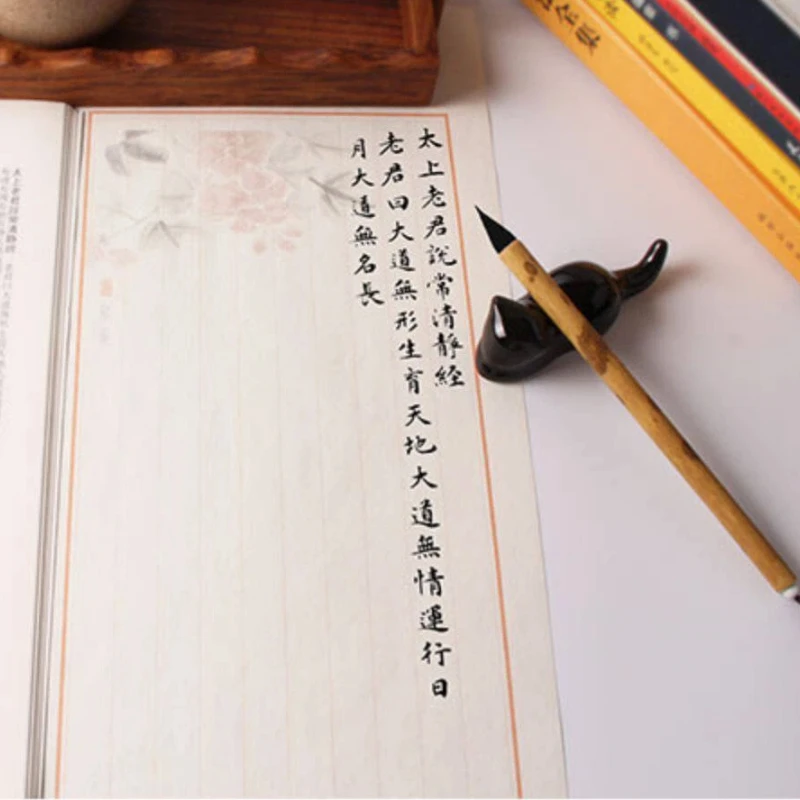 太上老君說常清靜經
老君曰大道無形生育天地大道無情運行日
月大道無名長